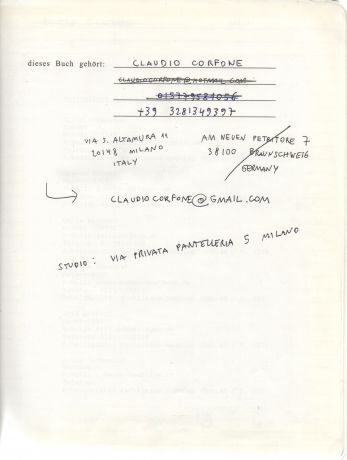 dieses Buch gehört: CLAUDIO CORFONE
CLAUDIOCORFONE@HOTMAIL.COM
015779584056
+39 3281349397
VIA S. ALTAMURA 11
20148 MILANO
ITALY
AM NEUEN PETRITORE 7
38100 BRAUNSCHWEIG
GERMANY
CLAUDIOCORFONE@GMAIL.COM
STUDIO: VIA PRIVATA PANTELLERIA 5 MILANO